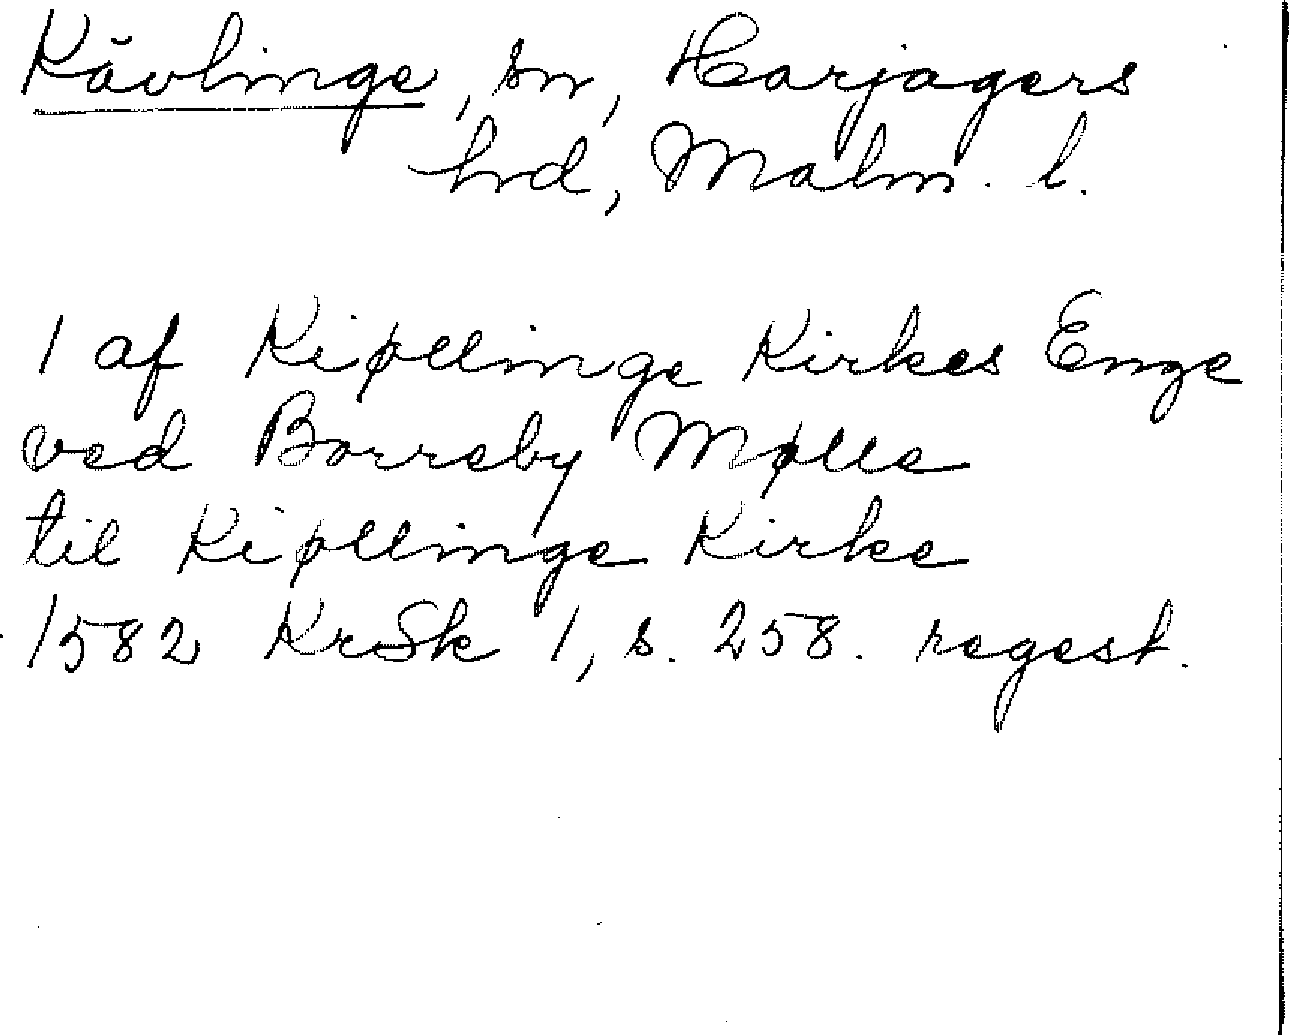 Kävlinge, sn, Harjagers
hrd, Malm. l.
1 af Kiøllinge Kirkes Enge
ved Borreby Mølle
til Kiøllinge Kirke
1582 KrSk 1, s. 258. regest.